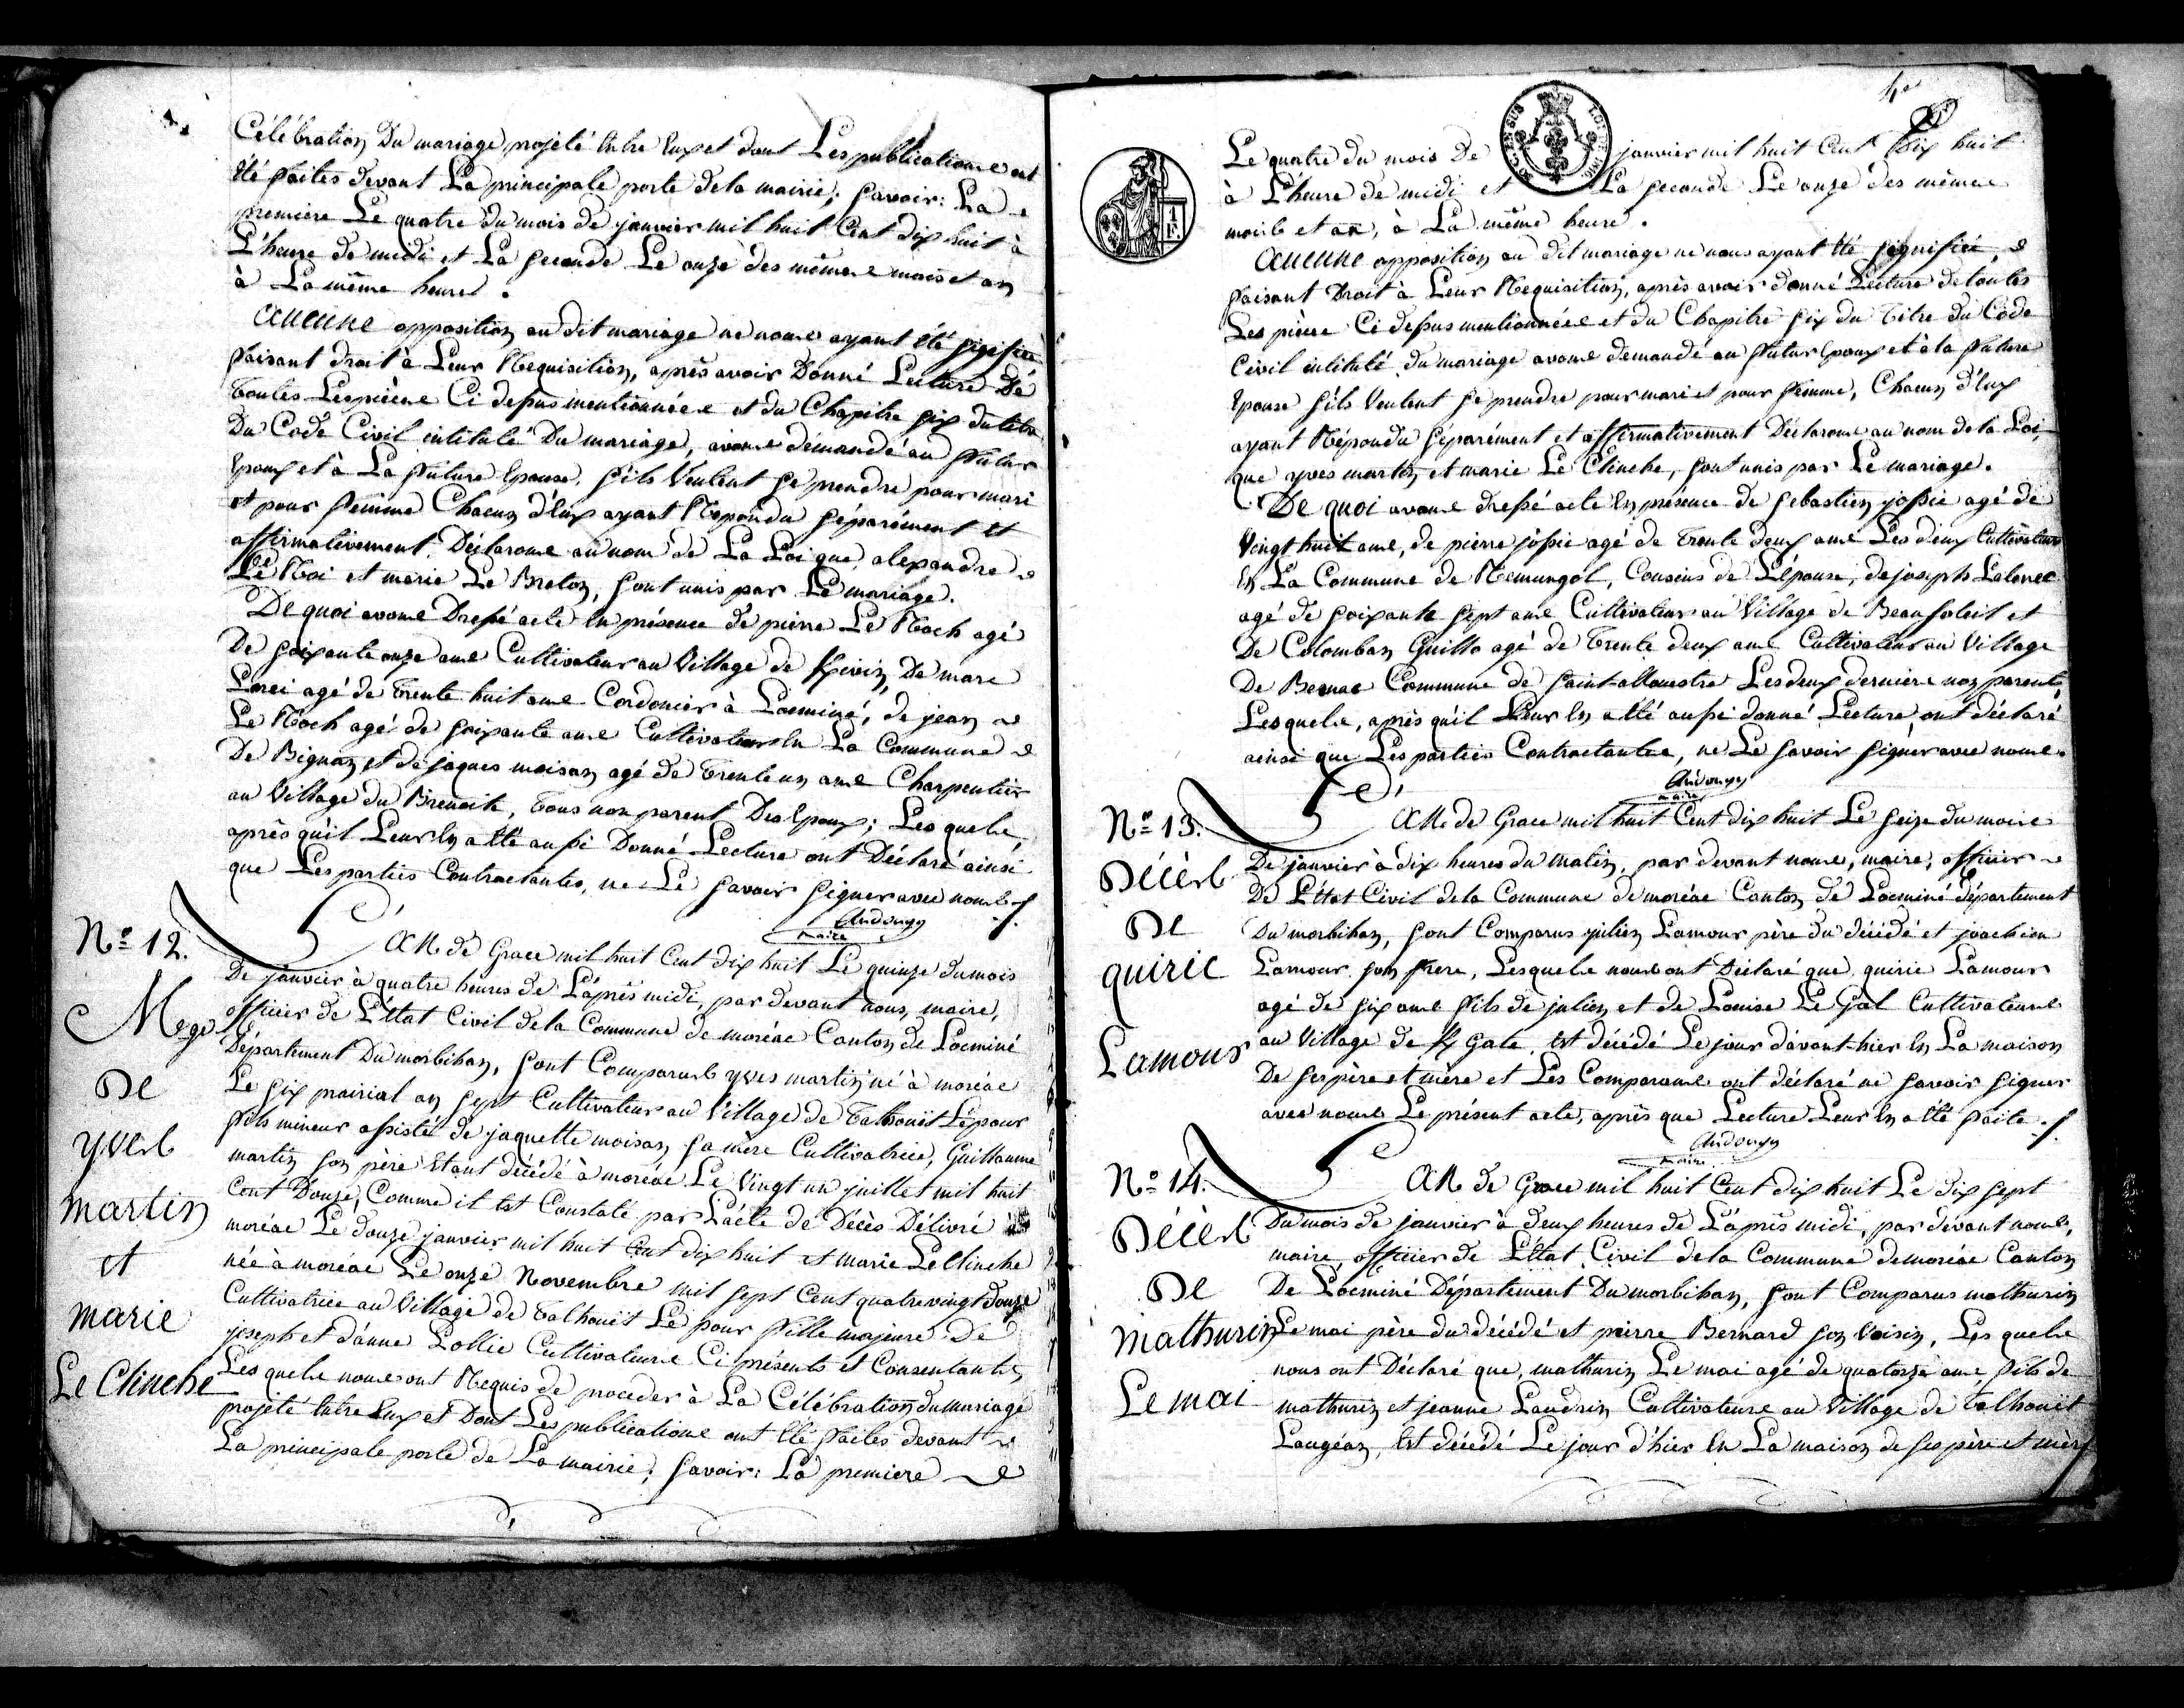 Célébration Du mariage projeté Entre Eux et dont Les publications ont
Été faites devant La principale porte de la mairie; savoir: La
premiere Le quatre du mois de janvier mil huit Cent dix huit à
L'heure de midi et La seconde Le onze des mêmes mois et an
à La même heure.
aucune opposition au dit mariage ne nous ayant été signifiée
faisant droit à Leur Requisition, après avoir Donné Lecture De
toutes Les pièces Ci dessus mentionnées et du Chapitre six du titre
Du Code Civil intitulé Du mariage, avons demandé au futur
Epoux et à La future Epouse, s'ils Veulent se prendre pour mari
et pour femme Chacun d'Eux ayant Repondu séparément et
affirmativement, Déclarons au nom de La Loi que alexandre
Le Roi et marie Le Breton, sont unis par Le mariage.
De quoi avons Dressé acte En présence de pierre Le Roch agé
De soixante onze ans Cultivateur au Village de De marc
Lorei agé de trente huit ans Cordonier à Locminé, de jean
Le Roch agé de soixante ans Cultivateurs En La Commune
De Bignan et de jaques moisan agé de trente un ans Charpentier
au Village du tous non parent Des Epoux; Les quels
après qu'il Leur En a Été aussi Donné Lecture ont Déclaré ainsi
que Les parties Contractantes, ne Le savoir signer avec nous
Andouyy
maire
N.º 12.
Mage
De
yves
martin
et
marie
Le Clinche
L'AN de Grace mil huit Cent dix huit Le quinze du mois
De janvier à quatre heures de L'après midi, par devant nous, maire,
officier de L'Etat Civil de la Commune de moréac Canton de Locminé
Département Du morbihan, sont Comparus yves martin né à moréac
Le six prairial an sept Cultivateur au Village de talhouit Lépour
fils mineur assisté de jaquette moisan sa mère Cultivatrice, Guillaume
martin son père Etant décédé à moréac Le Vingt un juillet mil huit
Cent Douze, Comme il Est Constaté par L'acte de Décès Délivré à
moréac Le douze janvier mil huit Cent dix huit et marie Le Clinche
née à moréac Le onze Novembre mil sept Cent quatre vingt douze
Cultivatrice au Village de talhouit Lé pour fille majeure De
joseph et d'anne Lollic Cultivateurs Ci présents et Consentants
Les quels nous ont Requis de proceder à La Célébration du mariage
projeté Entre Eux et Dont Les publications ont Eté faites devant
La principale porte de La mairie; savoir: La premiere
Le quatre du mois De janvier mil huit Cent Dix huit
à L'heure de midi et La seconde Le onze des mêmes
mois et an, à La même heure.
aucune opposition au dit mariage ne nous ayant Eté signifiée,
faisant Droit à Leur Requisition, après avoir donné Lecture de toutes
Les pièces Ci dessus mentionnées et du Chapitre six du Titre du Code
Civil intitulé du mariage avons demandé au futur Epoux et à la future
Epouse s'ils Veulent se prendre pour mari et pour femme, Chacun d'Eux
ayant Répondu séparément et affirmativement Déclarons au nom de la Loi,
que yves martin et marie Le Clinche, sont unis par Le mariage.
De quoi avons dressé acte En présence de sebastien jossic agé de
Vingt huit ans, de pierre jossic agé de trente deux ans Les deux Cultivateurs
En La Commune de Remungol, Cousins de L'épouse, de joseph
agé de soixante sept ans Cultivateur au Village de Beausoleil et
De Colomban Guillo agé de trente deux ans Cultivateur au Village
De Commune de saint-allouestre Les deux derniers non parents,
Les quels, après qu'il Leur En a Eté aussi donné Lecture ont déclaré
ainsi que Les parties Contractantes, ne Le savoir signer avec nous.
Andouyy
maire
N.º 13.
Décès
De
quiric
Lamour
L'AN de Grace mil huit Cent dix huit Le seize du mois
De janvier à dix heures du matin, par devant nous, maire, officier
De L'Etat Civil de la Commune de moréac Canton de Locminé département
Du morbihan, sont Comparus julien Lamour père du décédé et joachim
Lamour son frere, Lesquels nous ont Déclaré que quiric Lamour
agé de six ans fils de julien et de Louise Le Gal Cultivateurs
au Village de K Gale, Est décédé Le jour d'avant-hier En La maison
De ses père et mère et Les Comparans ont déclaré ne savoir signer
avec nous Le présent acte, après que Lecture Leur En a Eté faite.
Andouyy
maire
N.º 14.
Décès
De
mathurin
Le mai
L'AN de Grace mil huit Cent dix huit Le dix sept
Du mois de janvier à deux heures de L'après midi, par devant nous,
maire, officier de L'Etat Civil de la Commune de moréac Canton
De Locminé Département Du morbihan, sont Comparus mathurin
Le mai père du décédé et pierre Bernard son Voisin, Les quels
nous ont Déclaré que, mathurin Le mai agé de quatorze ans, fils de
mathurin et jeanne Laudrin Cultivateurs au Village de talhouit
Laugéan, Est décédé Le jour d'hier En La maison de ses père et mère